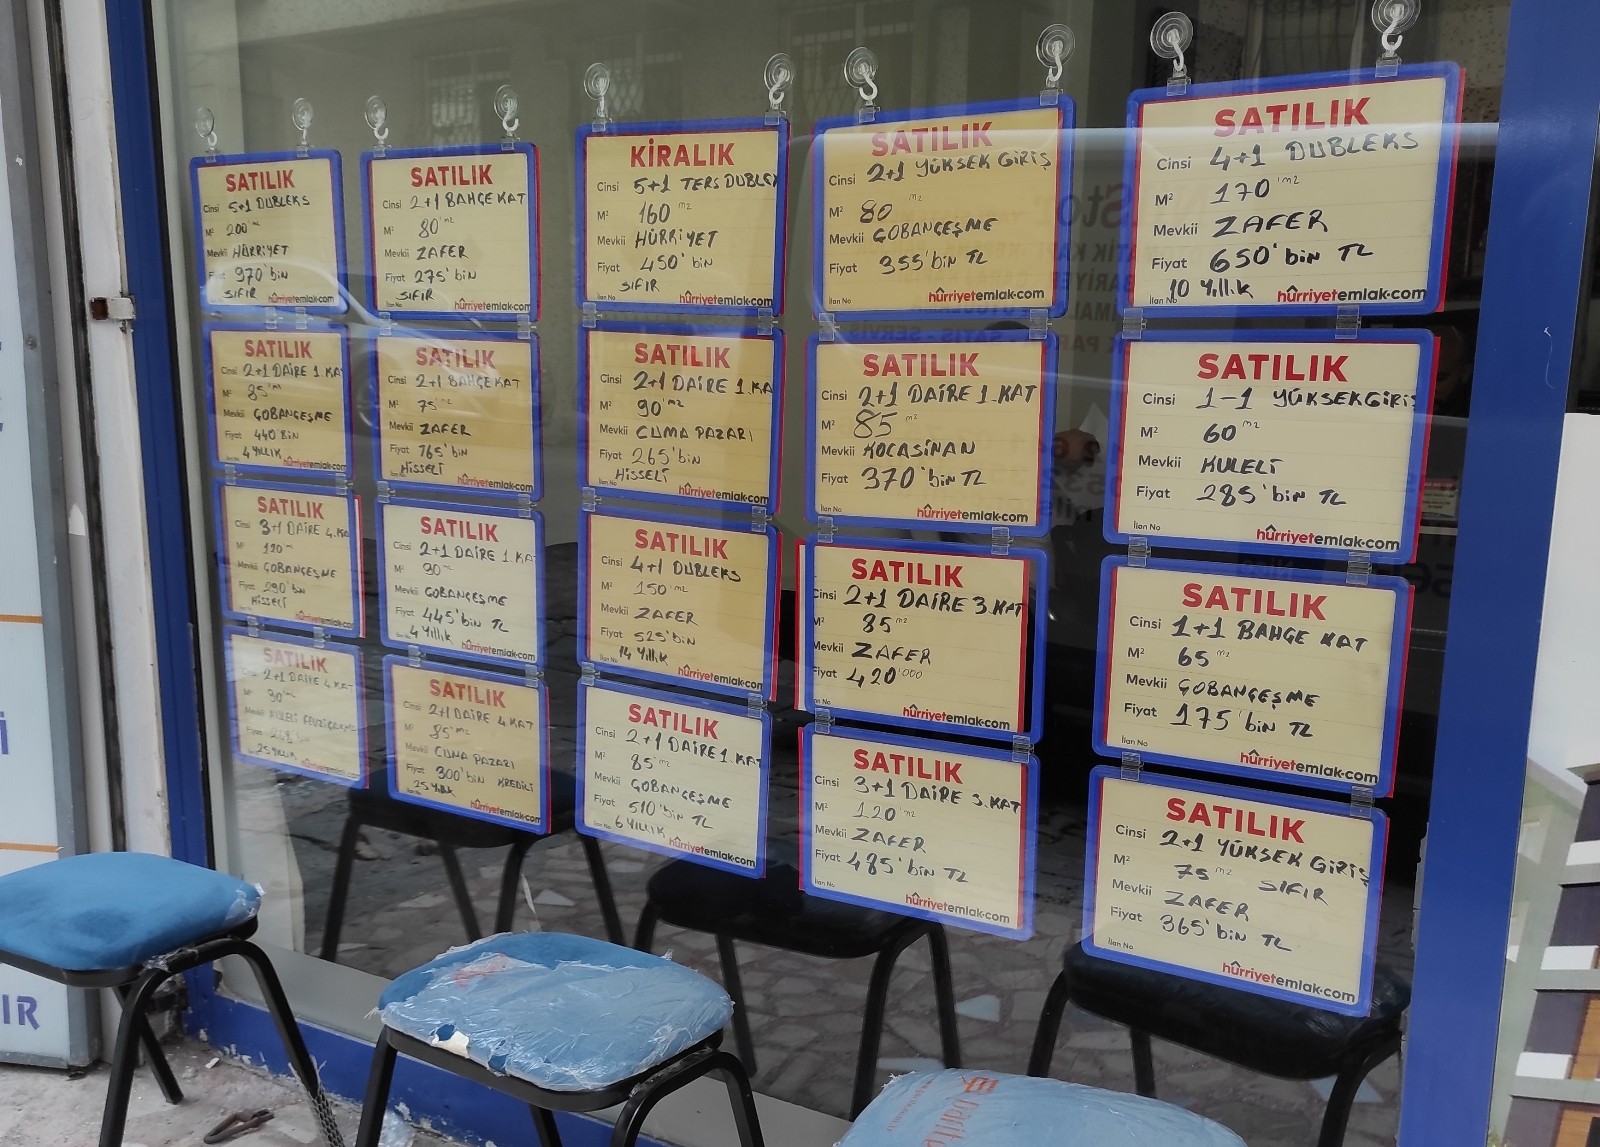 SATILIK
Cinsi 5+1 DUBLEKS
M² 200 m²
Mevkii HÜRRİYET
Fiyat 970'bin
SIFIR
hürriyetemlak.com
SATILIK
Cinsi 2+1 BAHÇE KAT
M² 80 m²
Mevkii ZAFER
Fiyat 275'bin
SIFIR
hürriyetemlak.com
KİRALIK
Cinsi 5+1 TERS DUBLEX
M² 160 m²
Mevkii HÜRRİYET
Fiyat 450'bin
SIFIR
İlan No
hürriyetemlak.com
SATILIK
Cinsi 2+1 YÜKSEK GİRİŞ
M² 80 m²
Mevkii ÇOBANÇEŞME
Fiyat 355'bin TL
İlan No
hürriyetemlak.com
SATILIK
Cinsi 4+1 DUBLEKS
M² 170 m²
Mevkii ZAFER
Fiyat 650'bin TL
İlan No 10 Yıllık
hürriyetemlak.com
SATILIK
Cinsi 2+1 DAİRE 1.KA
M² 85 m²
Mevkii ÇOBANÇEŞME
Fiyat 440 BİN
4 YILLIK
hürriyetemlak.com
SATILIK
Cinsi 2+1 BAHÇE KAT
M² 75 m²
Mevkii ZAFER
Fiyat 765'bin
HİSSELİ
hürriyetemlak.com
SATILIK
Cinsi 2+1 DAİRE 1.KA
M² 90 m²
Mevkii CUMA PAZARI
Fiyat 265'bin
HİSSELİ
hürriyetemlak.com
SATILIK
Cinsi 2+1 DAİRE 1.KAT
M² 85 m²
Mevkii KOCASİNAN
Fiyat 370'bin TL
İlan No
hürriyetemlak.com
SATILIK
Cinsi 1-1 YÜKSEK GİRİŞ
M² 60 m²
Mevkii KULELİ
Fiyat 285'bin TL
İlan No
hürriyetemlak.com
SATILIK
Cinsi 3+1 DAİRE 4.KA
M² 120 m²
Mevkii ÇOBANÇEŞME
Fiyat 290'bin
HİSSELİ
hürriyetemlak.com
SATILIK
Cinsi 2+1 DAİRE 1 KA
M² 90 m²
Mevkii ÇOBANÇEŞME
Fiyat 445'bin TL
4 Yıllık
hürriyetemlak.com
SATILIK
Cinsi 4+1 DUBLEKS
M² 150 m²
Mevkii ZAFER
Fiyat 525'bin
14 Yıllık
hürriyetemlak.com
SATILIK
Cinsi 2+1 DAİRE 3.KAT
M² 85 m²
Mevkii ZAFER
Fiyat 420'000
hürriyetemlak.com
SATILIK
Cinsi 1+1 BAHÇE KAT
M² 65 m²
Mevkii ÇOBANÇEŞME
Fiyat 175'bin TL
İlan No
hürriyetemlak.com
SATILIK
2+1 DAİRE 4 KAT
M² 90 m²
Mevkii KULELİ
Fiyat
25 Yıllık
hürriyetemlak.com
SATILIK
Cinsi 2+1 DAİRE 4 KAT
M² 85 m²
Mevkii CUMA PAZARI
Fiyat 300'bin KREDİLİ
25 Yıllık
hürriyetemlak.com
SATILIK
Cinsi 2+1 DAİRE 1.KAT
M² 85 m²
Mevkii ÇOBANÇEŞME
Fiyat 510'bin TL
6 YILLIK
hürriyetemlak.com
SATILIK
Cinsi 3+1 DAİRE 3.KAT
M² 120 m²
Mevkii ZAFER
Fiyat 485'bin TL
İlan No
hürriyetemlak.com
SATILIK
Cinsi 2+1 YÜKSEK GİRİŞ
M² 75 m² SIFIR
Mevkii ZAFER
Fiyat 365'bin TL
İlan No
hürriyetemlak.com